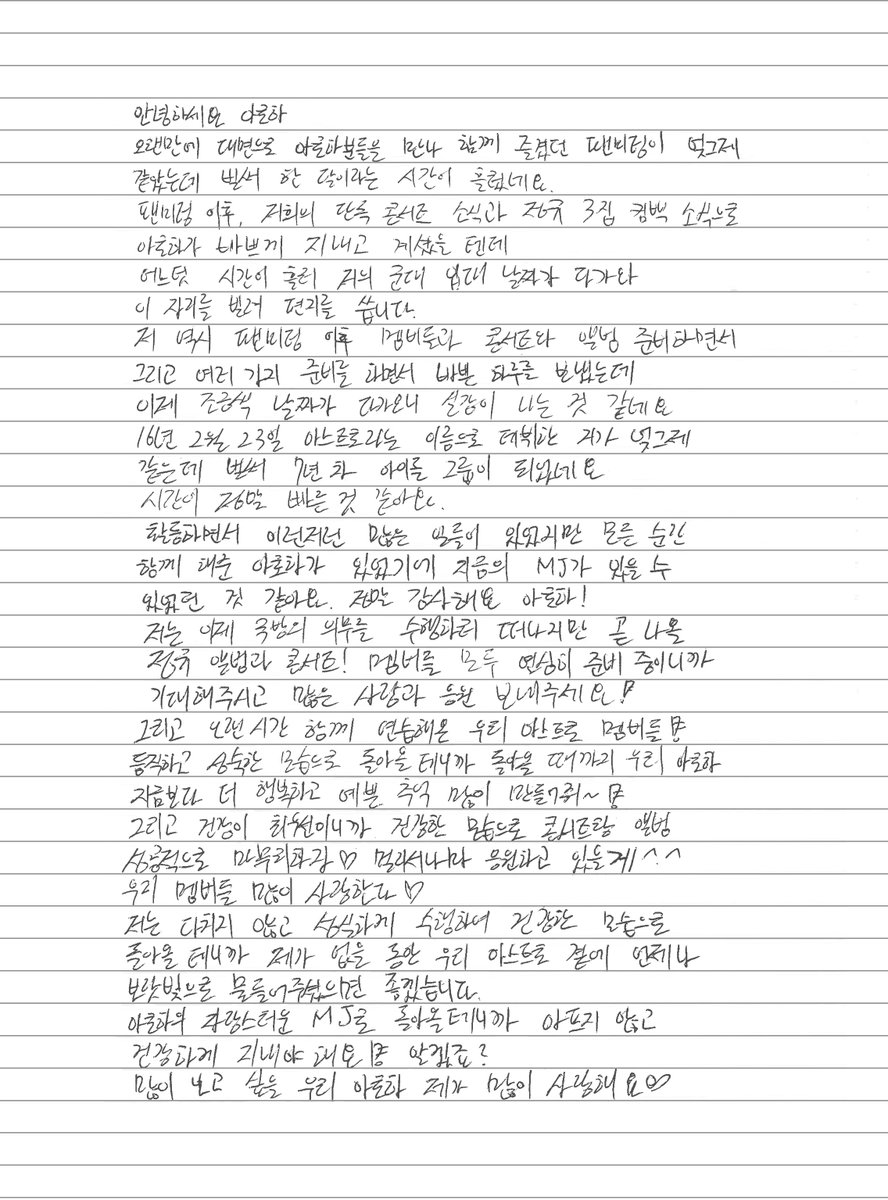 안녕하세요 아로하
오랜만에 대면으로 아로하분들을 만나 함께 즐겼던 팬미팅이 엊그제
같았는데 벌써 한 달이라는 시간이 흘렀네요.
팬미팅 이후, 저희의 단독 콘서트 소식과 정규 3집 컴백 소식으로
아로하가 바쁘게 지내고 계셨을 텐데
어느덧 시간이 흘러 저의 군대 입대 날짜가 다가와
이 자리를 빌려 편지를 씁니다.
저 역시 팬미팅 이후 멤버들과 콘서트와 앨범 준비하면서
그리고 여러 가지 준비를 하면서 바쁜 하루를 보냈는데
이제 조금씩 날짜가 다가오니 실감이 나는 것 같네요
16년 2월 23일 아스트로라는 이름으로 데뷔한 저가 엊그제
같은데 벌써 7년 차 아이돌 그룹이 되었네요
시간이 정말 빠른 것 같아요.
활동하면서 이런저런 많은 일들이 있었지만 모든 순간
함께 해준 아로하가 있었기에 지금의 MJ가 있을 수
있었던 것 같아요. 정말 감사해요 아로하!
저는 이제 국방의 의무를 수행하러 떠나지만 곧 나올
정규 앨범과 콘서트! 멤버들 모두 열심히 준비 중이니까
기대해주시고 많은 사랑과 응원 보내주세요!
그리고 오랜 시간 함께 연습해온 우리 아스트로 멤버들!
듬직하고 성숙한 모습으로 돌아올 테니까 돌아올 때까지 우리 아로하
지금보다 더 행복하고 예쁜 추억 많이 만들어줘~!
그리고 건강이 최우선이니까 건강한 모습으로 콘서트랑 앨범
성공적으로 마무리하장♡ 멀리서나마 응원하고 있을게^^
우리 멤버들 많이 사랑한다♡
저는 다치지 않고 성실하게 수행하여 건강한 모습으로
돌아올 테니까 제가 없을 동안 우리 아스트로 곁에 언제나
보랏빛으로 물들어주셨으면 좋겠습니다.
아로하의 자랑스러운 MJ로 돌아올테니까 아프지 않고
건강하게 지내야 해요! 알겠죠?
많이 보고 싶을 우리 아로하 제가 많이 사랑해요♡